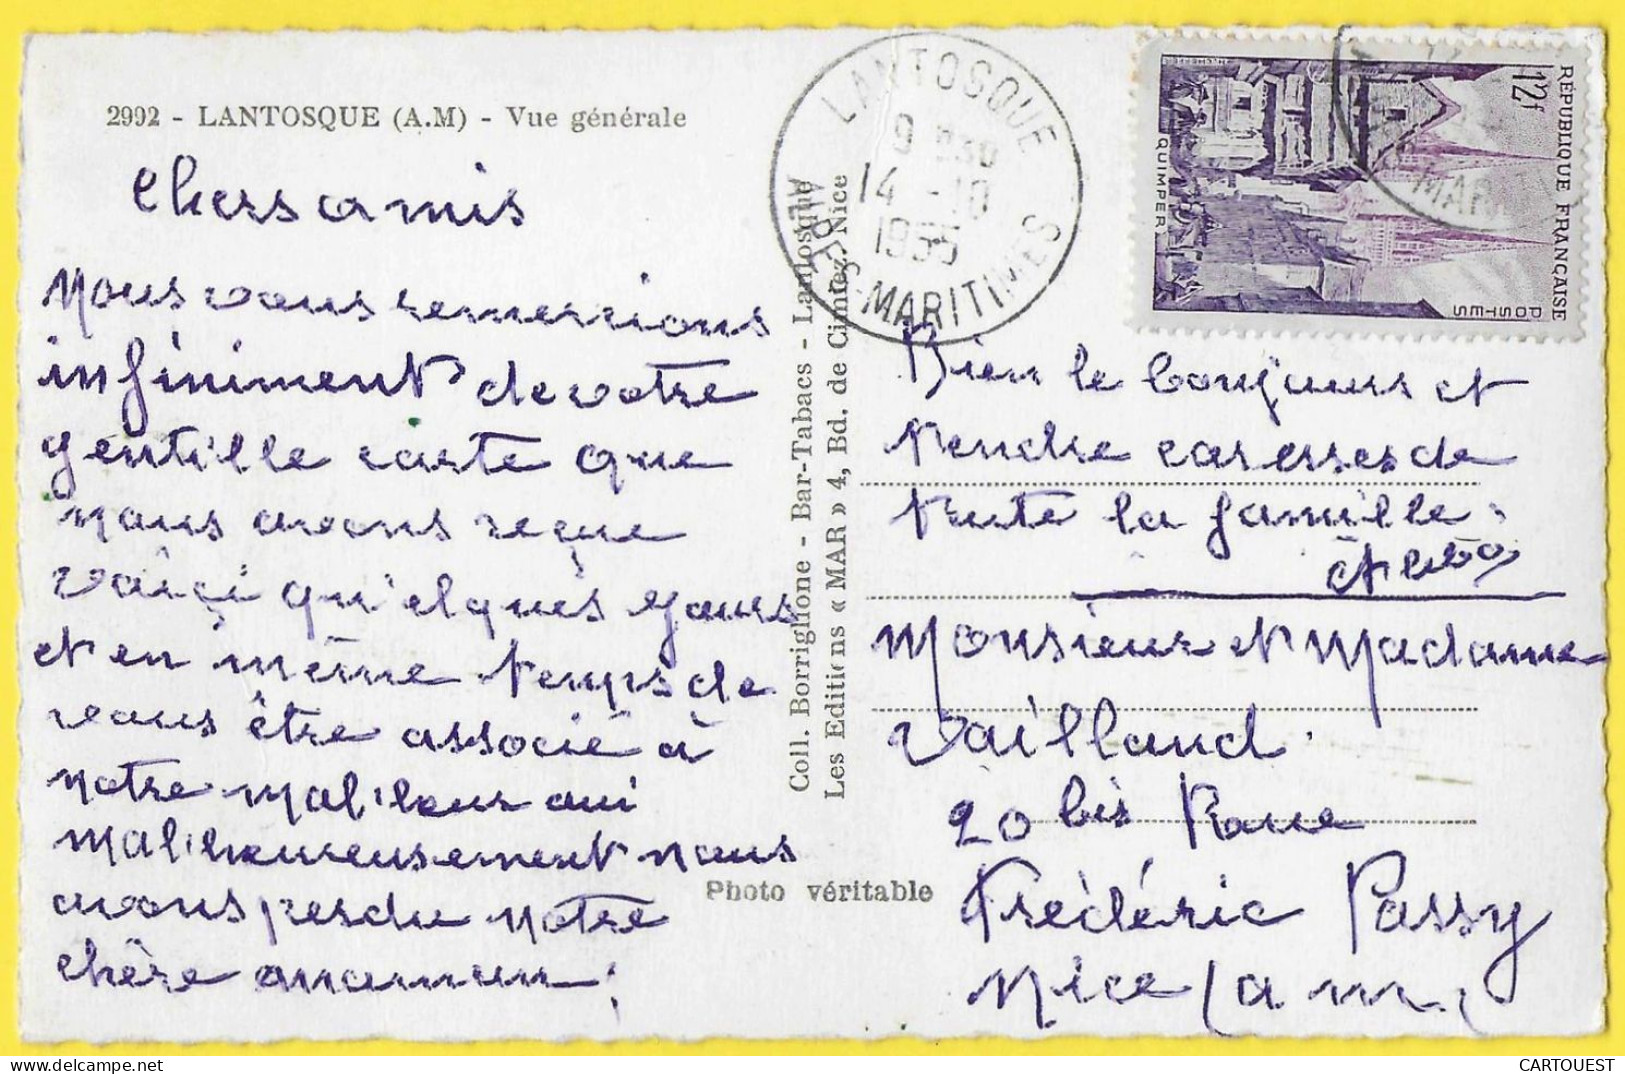 2992 - LANTOSQUE (A.M) - Vue générale
Chers amis
Nous vous remercions
infiniment de votre
gentille carte que
nous avons reçue
voiçi qu'elques jours
et en même temps de
vous être associé à
notre mal'heur
mal'heureusement nous
avons perdu notre
chère
Coll. Borriglione - Bar-Tabacs - Lantosque
Les Editions « MAR » 4, Bd. de Cimiez, Nice
Photo véritable
LANTOSQUE
9 H30
14 -10
1955
ALPES-MARITIMES
RÉPUBLIQUE FRANÇAISE
POSTES
12f
QUIMPER
MAR
Bien le bonjours et
tendre caresses de
toute la famille
Monsieur et Madame
Vailland.
20 bis Rue
Frédéric Passy
Nice (a m)
CARTOUEST